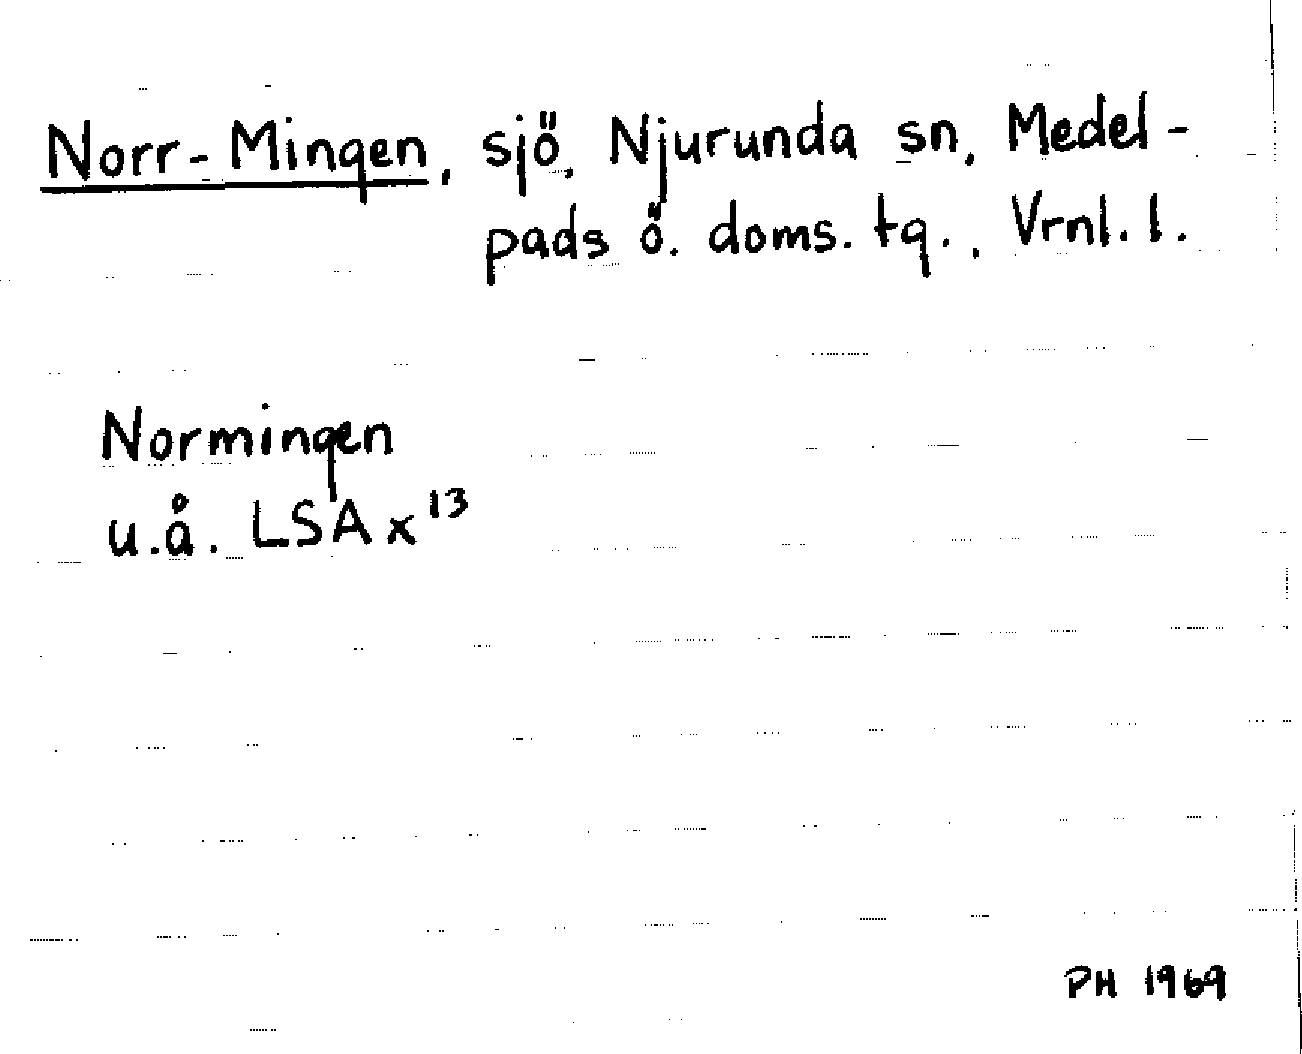 Norr-Mingen, sjö, Njurunda sn, Medel-
pads ö. doms. tg., Vrnl. l.
Normingen
u.å. LSA x¹³
PH 1969